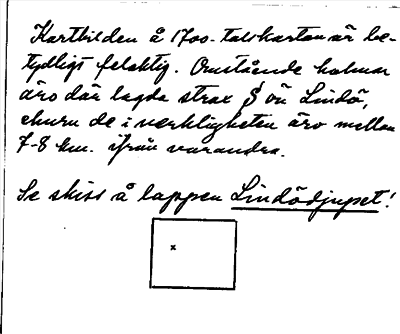 Kartbilden å 1700-talskartan är be-
tydligt felaktig. Omstående holmar
äro där lagda strax S on Lindö,
ehuru de i verkligheten äro mellan
7-8 km. ifrån varandra.
Se skiss å lappen Lindödjupet!
x